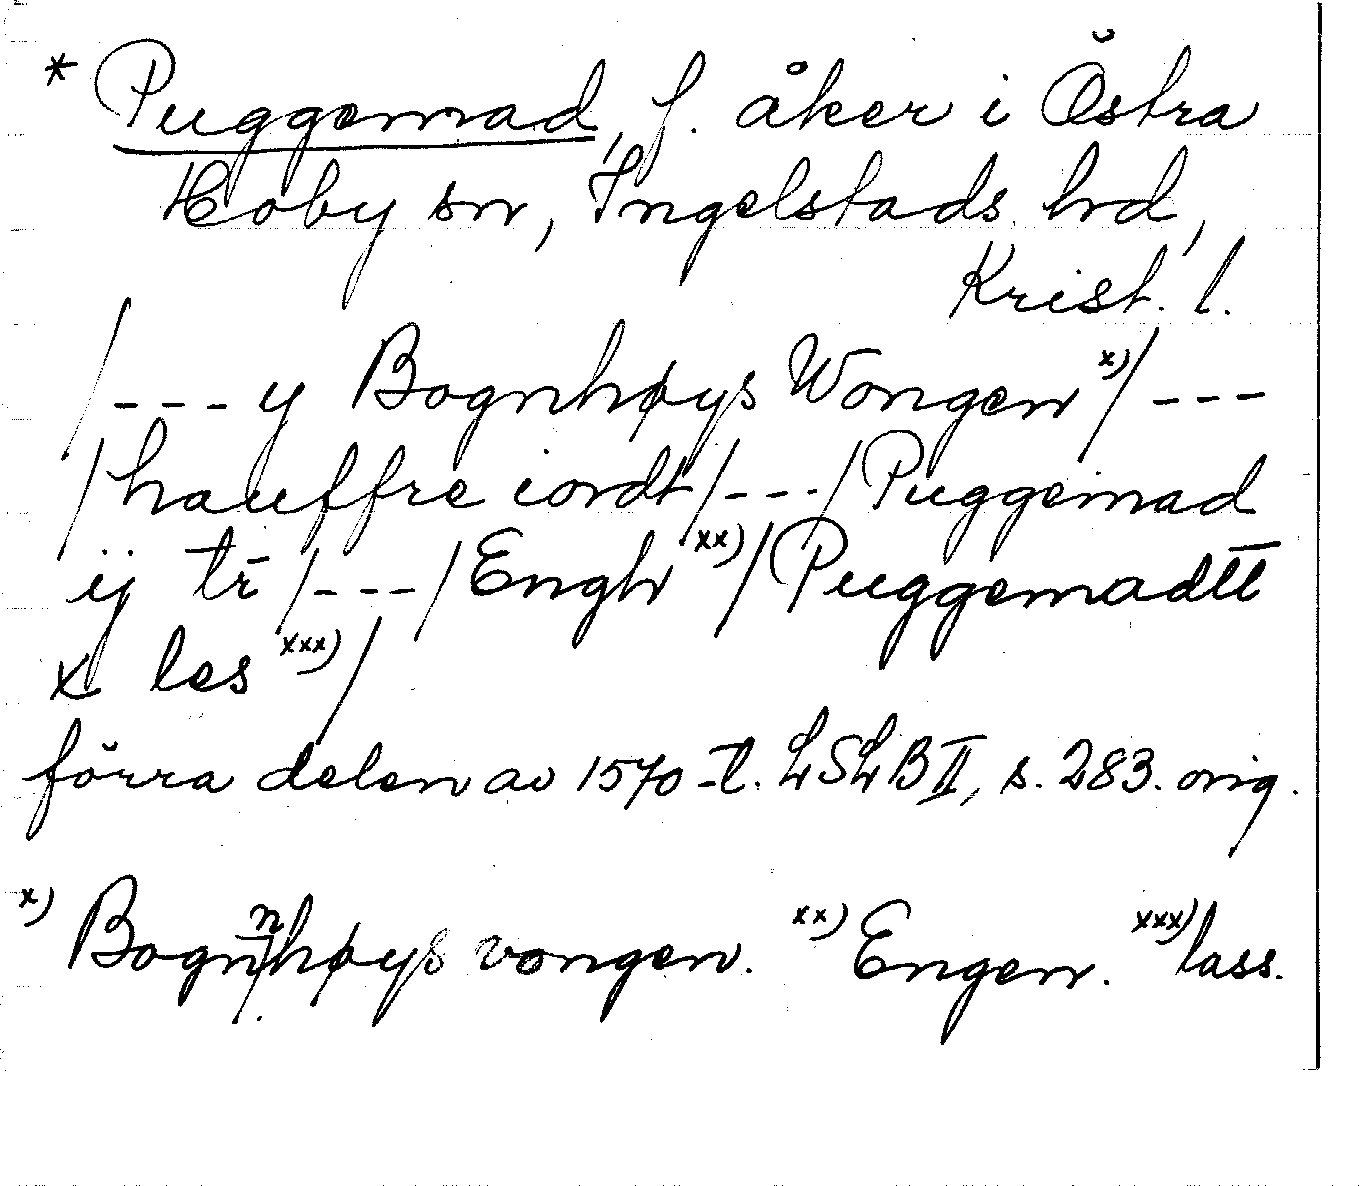 * Puggemad, f. åker i Östra
Hoby sn, Ingelstads hd,
Krist. l.
/---y Bognhøys Wongen x)/---
/hauffre iordt/---/Puggemad
ij tr̄ /---/Engh xx)/Puggemadtt
x les xxx)/
förra delen av 1570-t. LSLB II, s. 283. orig.
x) Bognnhøys vongen. xx) Engen. xxx) lass.